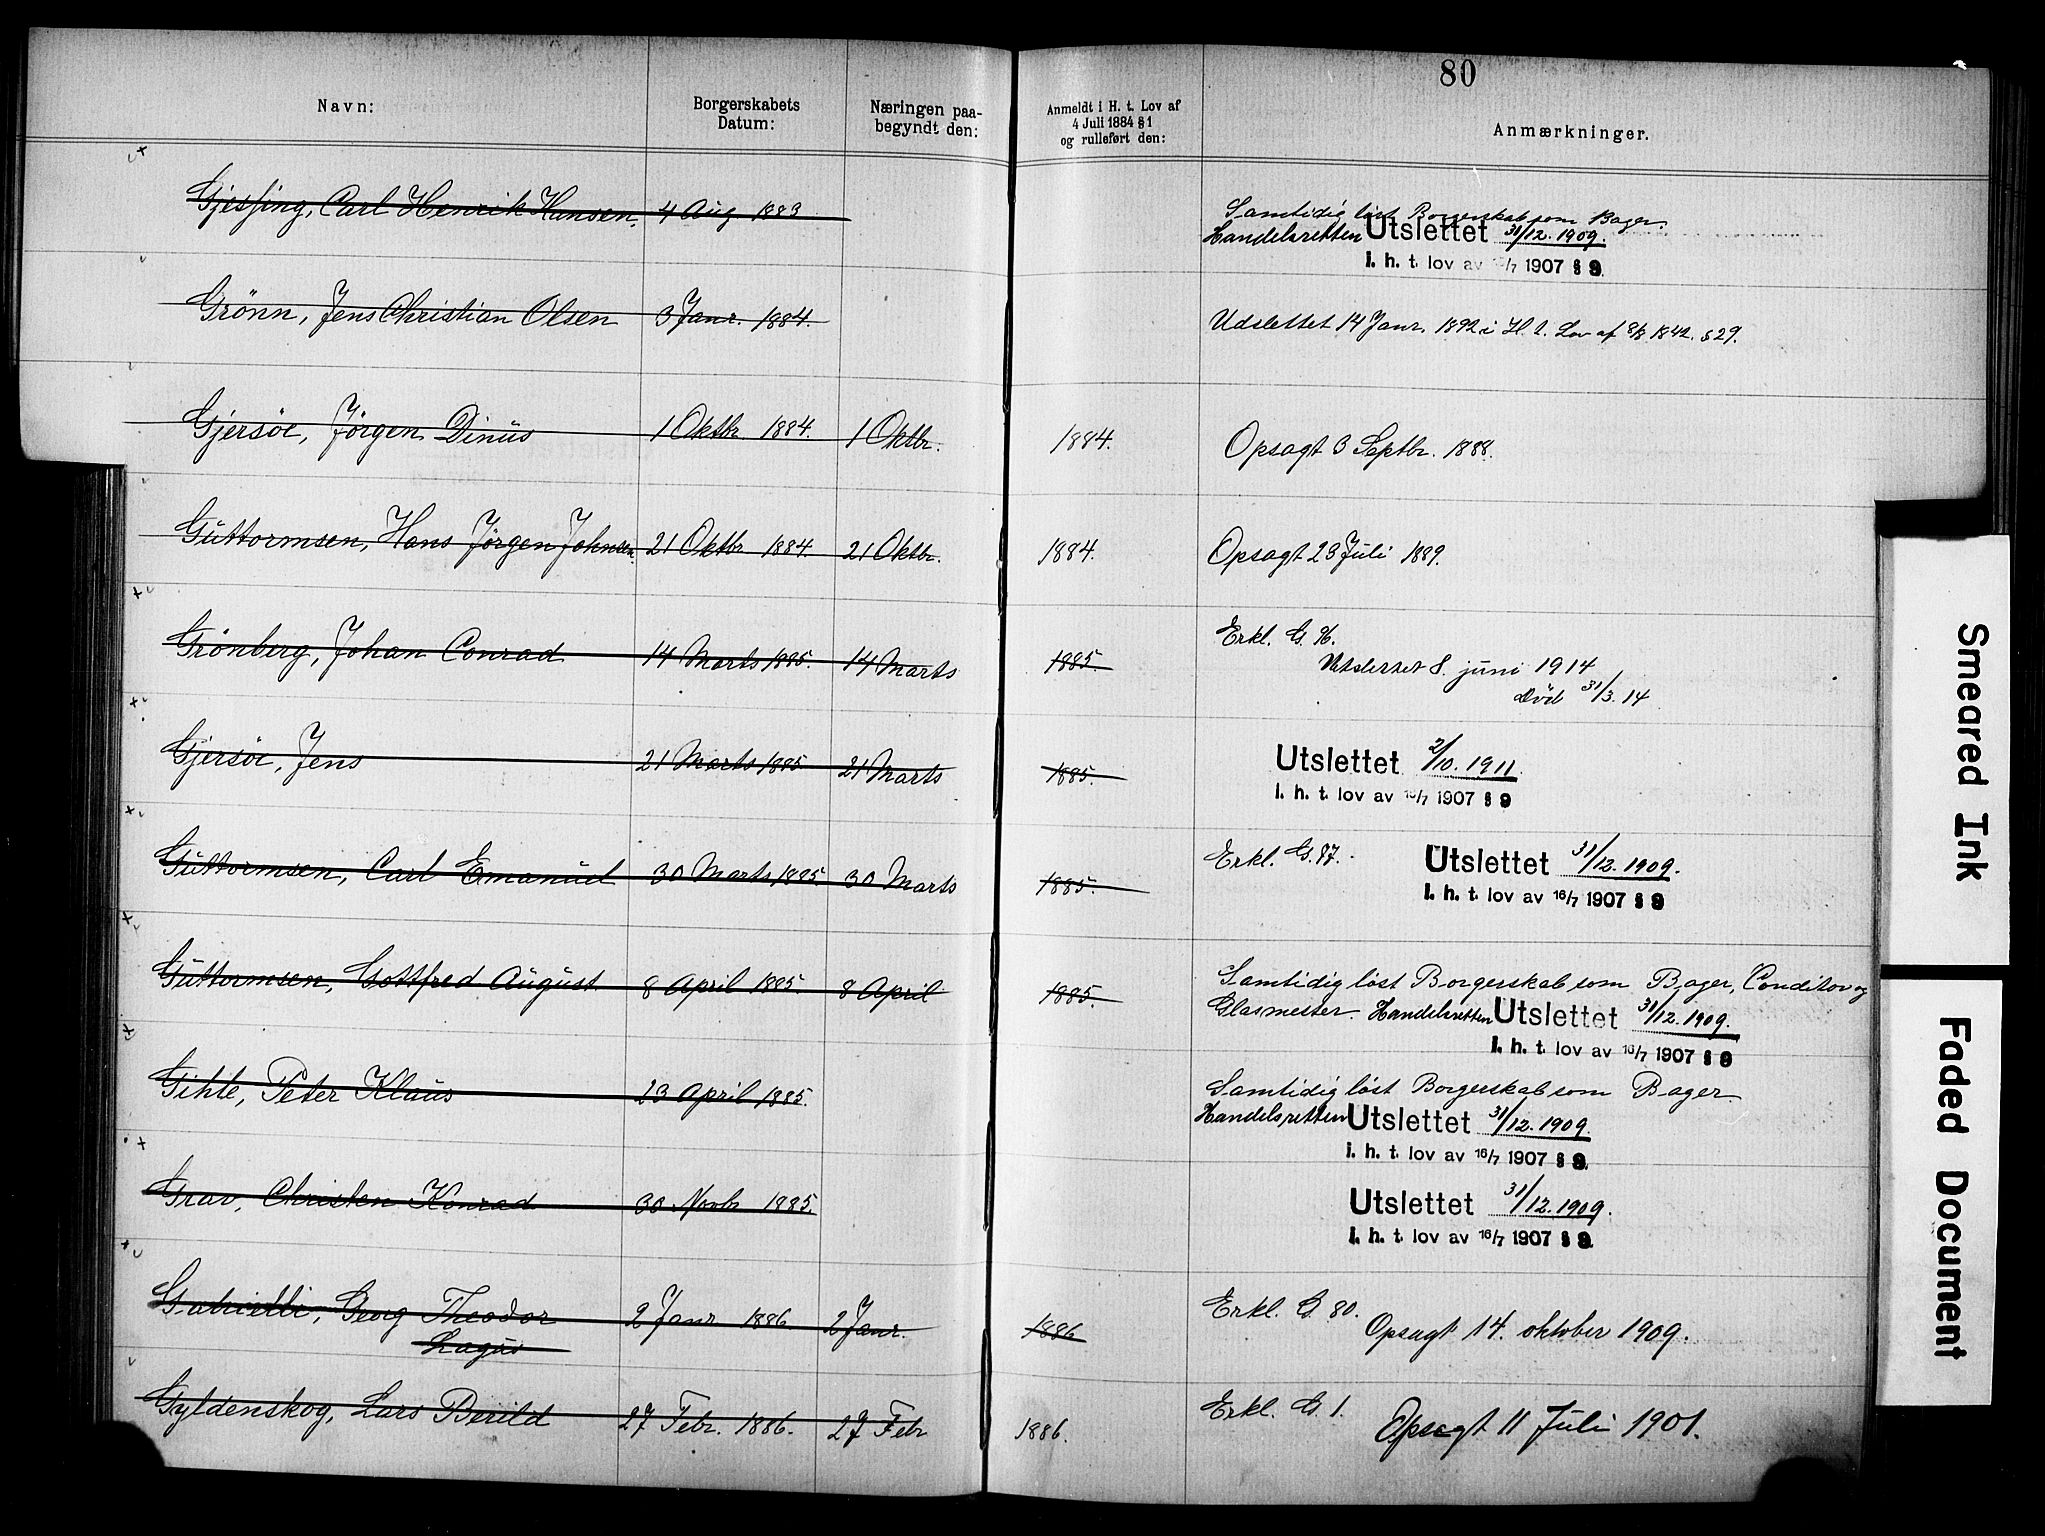 80
Navn:
Borgerskabets Datum:
Næringen paa-
begyndt den:
Anmeldt i H. t. Lov af
4 Juli 1884 § 1
og rulleført den:
Anmærkninger.
Gjessing, Carl Henrik Hansen. 4 Aug 1883
Samtidig løst Borgerskab som Bager.
Handelsretten Utslettet 31/12. 1909.
i. h. t. lov av 16/7 1907 § 9
Grönn, Jens Christian Olsen 3 Janr. 1884. Udslettet 14 Janr. 1892 i H. t. Lov af 8/8 1842. § 29.
Gjersöe, Jörgen Dinüs 1 Oktbr. 1884. 1 Oktbr. 1884. Opsagt 3 Septbr. 1888.
Güttormsen, Hans Jörgen Johnsen. 21 Oktbr 1884 21 Oktbr. 1884. Opsagt 23 Juli 1889.
Grönberg, Johan Conrad 14 Marts 1885. 14 Marts 1885 Erkl. G.
Utslettet 8. juni 1914
Död 31/3. 14
Gjersöe, Jens 21 Marts 1885 21 Marts 1885. Utslettet 2/10. 1911.
i. h. t. lov av 16/7 1907 § 9
Güttormsen, Carl Emanüel 30 Marts 1885. 30 Marts 1885. Erkl. G. 77. Utslettet 31/12. 1909.
i. h. t. lov av 16/7 1907 § 9
Güttormsen, Gottfred August 8 April 1885. 8 April 1885. Samtidig löst Borgerskab som Bager, Conditor og
Glasmester. Handelsretten Utslettet 31/12. 1909.
i. h. t. lov av 16/7 1907 § 9
Gihle, Peter Klaüs 23 April 1885. Samtidig löst Borgerskab som Bager.
Handelsretten Utslettet 31/12. 1909.
i. h. t. lov av 16/7 1907 § 9.
Grav, Christen Konrad 30 Novbr 1885. Utslettet 31/12. 1909.
i. h. t. lov av 16/7 1907 § 9
Gabrielli, Georg Theodor 2 Janr 1886. 2 Janr. 1886 Erkl. G. 80.
Lagüs Opsagt 14. oktober 1909.
Gyldenskog, Lars Berild 27 Febr. 1886. 27 Febr 1886. Erkl. G. 1. Opsagt 11 Juli 1901.
Smeared Ink
Faded Document